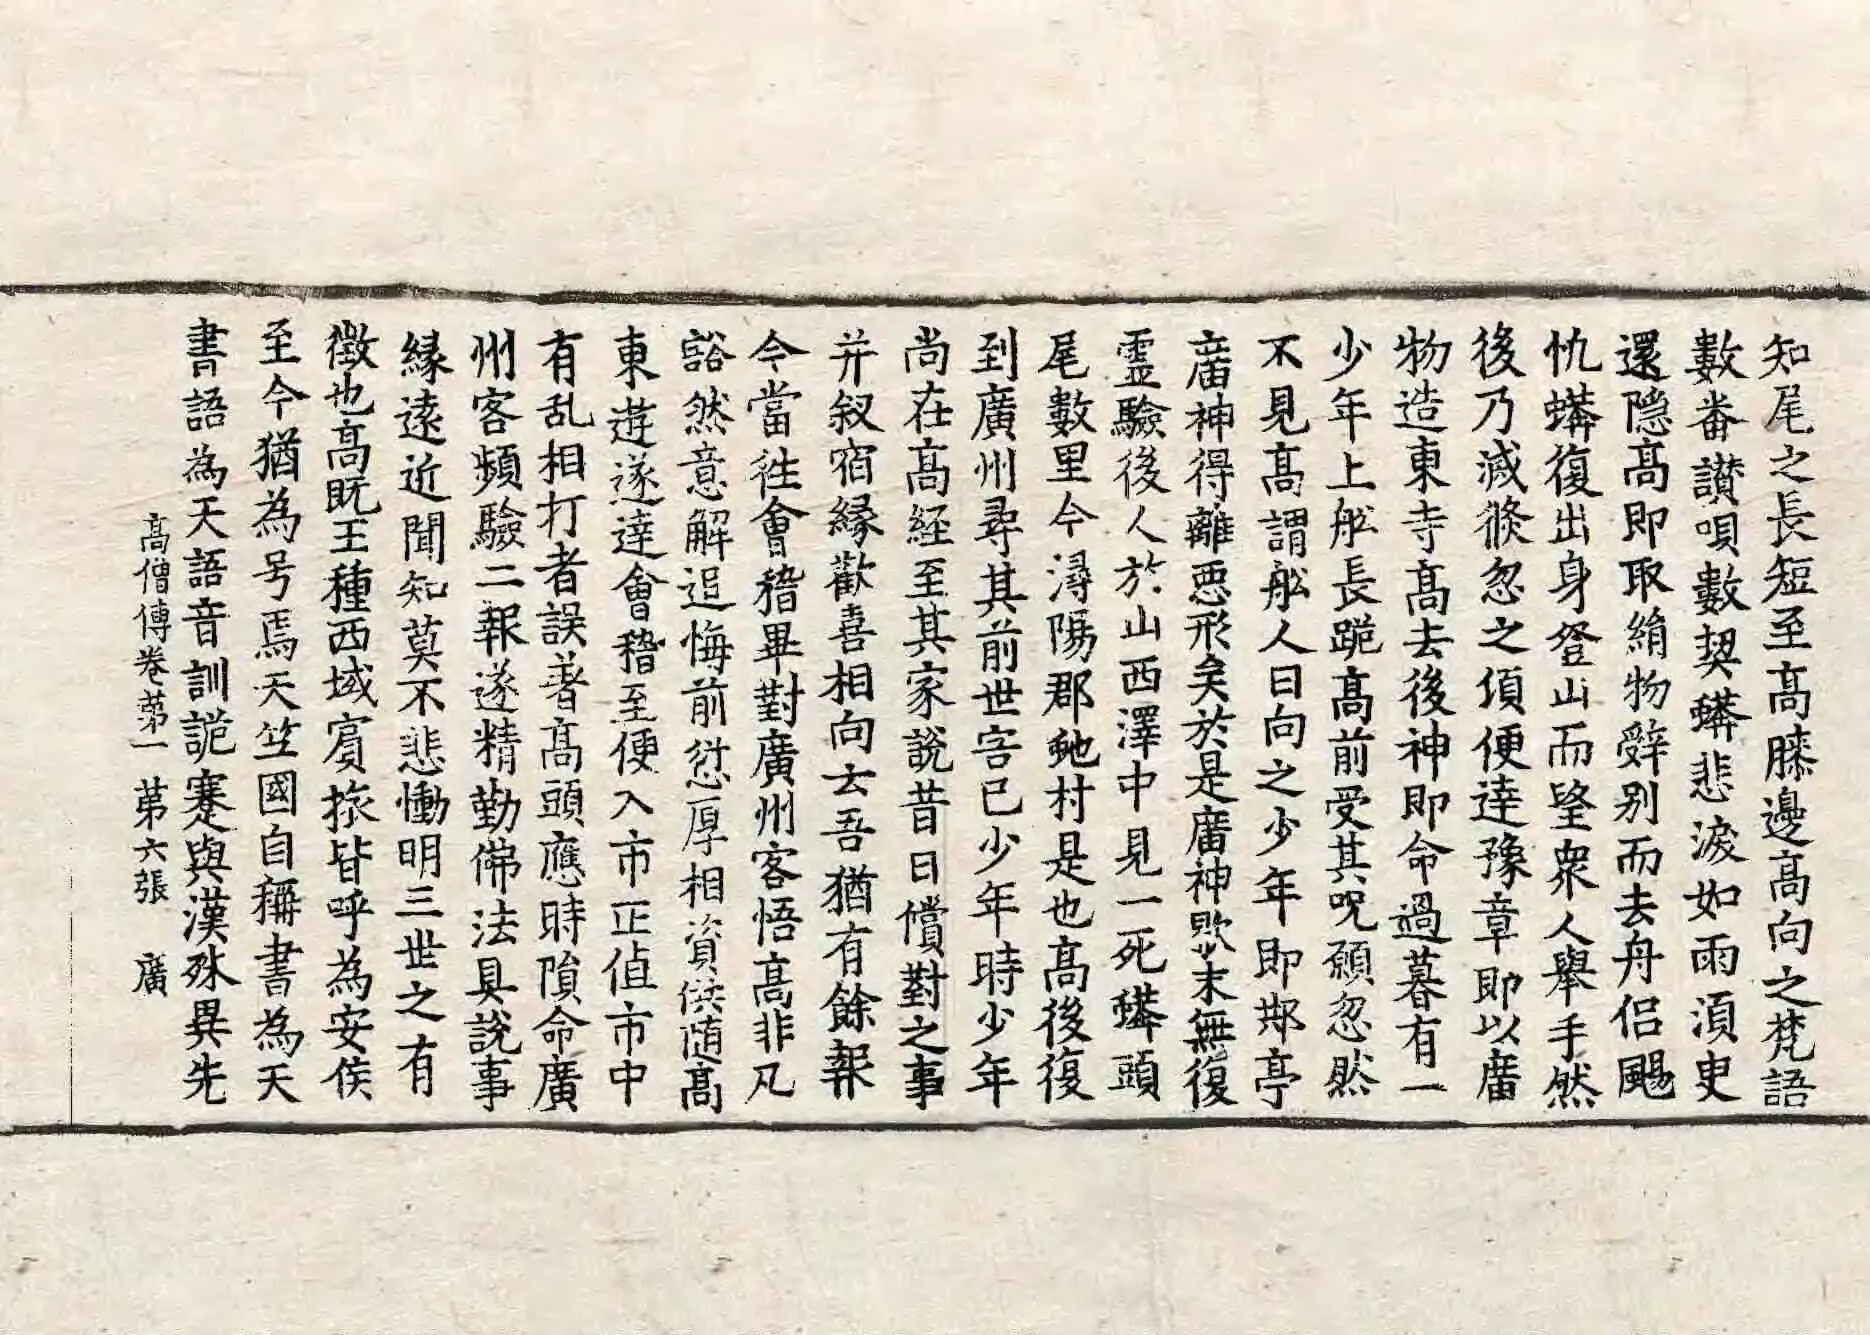 知尾之長短至髙膝邊髙向之梵語
數番讃唄數契蟒悲淚如雨湏史
還隠髙即取絹物辤别而去舟侣颺
忛蟒復出身登山而朢衆人舉手然
後乃滅倏忽之傾便達豫章即以廣
物造東寺髙去後神即命過暮有一
少年上舩長跪髙前受其呪願忽然
不見髙謂舩人曰向之少年即䢼亭
廟神得離悪形矣於是廟神歇末無復
霊驗後人於山西澤中見一死蟒頭
尾數里今潯陽郡虵村是也髙後復
到廣州尋其前世害已少年時少年
尚在髙経至其家說昔日償對之事
并叙宿縁歡喜相向去吾猶有餘報
今當徃會稽畢對廣州客悟髙非凡
豁然意解追悔前愆厚相資供随髙
東遊遂達會稽至便入市正值市中
有乱相打者誤著髙頭應時隕命廣
州客頻驗二報遂精勤佛法具說事
縁遠近聞知莫不悲慟明三世之有
徵也髙既王種西域賔旅皆呼為安侯
至今猶為号焉天竺國自稱書為天
書語為天語音訓詭蹇與漢殊異先
髙僧傳卷苐一 苐六張 廣